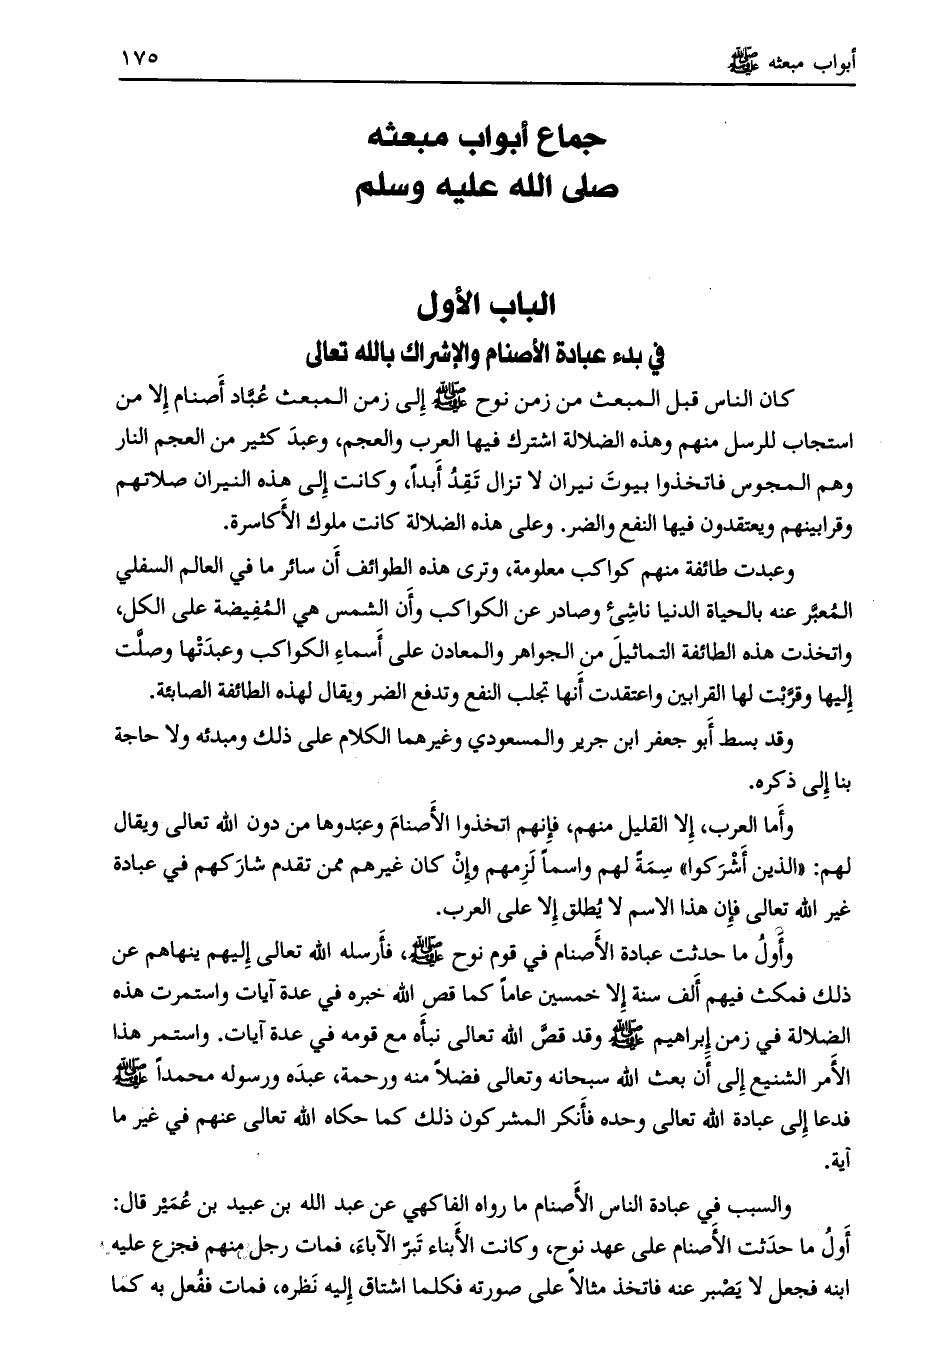 أبواب مبعثه ﷺ ١٧٥
جماع أبواب مبعثه
صلى الله عليه وسلم
الباب الأول
في بدء عبادة الأصنام والإشراك بالله تعالى
كان الناس قبل المبعث من زمن نوح ﷺ إلى زمن المبعث عُبَّاد أَصنام إلا من
استجاب للرسل منهم وهذه الضلالة اشترك فيها العرب والعجم، وعبدَ كثير من العجم النار
وهم المجوس فاتخذوا بيوتَ نيران لا تزال تَقِدُ أَبداً، وكانت إِلى هذه النيران صلاتهم
وقرابينهم ويعتقدون فيها النفع والضر. وعلى هذه الضلالة كانت ملوك الأَكاسرة.
وعبدت طائفة منهم كواكب معلومة، وترى هذه الطوائف أن سائر ما في العالم السفلي
المُعبَّر عنه بالحياة الدنيا ناشِئ وصادر عن الكواكب وأَن الشمس هي المُفِيضة على الكل،
واتخذت هذه الطائفة التماثيلَ من الجواهر والمعادن على أَسماءِ الكواكب وعبدَتْها وصلَّت
إِليها وقرَّبْت لها القرابين واعتقدت أَنها تجلب النفع وتدفع الضر ويقال لهذه الطائفة الصابئة.
وقد بسط أَبو جعفر ابن جرير والمسعودي وغيرهما الكلام على ذلك ومبدئه ولا حاجة
بنا إِلى ذكره.
وأَما العرب، إِلا القليل منهم، فإِنهم اتخذوا الأَصنامَ وعبَدوها من دون الله تعالى ويقال
لهم: «الذين أَشْرَكوا» سِمَةً لهم واسماً لَزِمهم وإِنْ كان غيرهم ممن تقدم شارَكهم في عبادة
غير الله تعالى فإن هذا الاسم لا يُطلق إلا على العرب.
وأَولُ ما حدثت عبادة الأَصنام في قوم نوح ﷺ، فأَرسله الله تعالى إِليهم ينهاهم عن
ذلك فمكث فيهم أَلف سنة إلا خمسين عاماً كما قص الله خبره في عدة آيات واستمرت هذه
الضلالة في زمن إِبراهيم ﷺ وقد قصَّ الله تعالى نبأَه مع قومه في عدة آيات. واستمر هذا
الأَمر الشنيع إِلى أَن بعث الله سبحانه وتعالى فضلاً منه ورحمة، عبدَه ورسوله محمداً ﷺ
فدعا إِلى عبادة الله تعالى وحده فأَنكر المشركون ذلك كما حكاه الله تعالى عنهم في غير ما
آية.
والسبب في عبادة الناس الأَصنام ما رواه الفاكهي عن عبد الله بن عبيد بن عُمَيْر قال:
أَولُ ما حدَثت الأَصنام على عهد نوح، وكانت الأَبناء تَبَرّ الآباءَ، فمات رجل منهم فجزع عليه
ابنه فجعل لا يَصْبر عنه فاتخذ مثالاً على صورته فكلما اشتاق إِليه نَظره، فمات ففُعل به كما